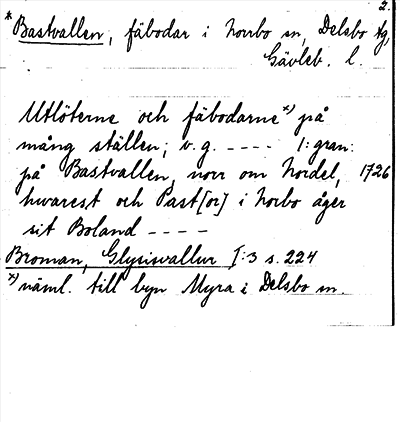 2.
* Bastvallen, fäbodar i Norrbo sn, Delsbo tg,
Gävleb. l.
Utlöterne och fäbodarne x) på
mång ställen; v. g. ---- /:gran:
på Bastvallen, norr om Nordel, 1726
hwarest och Past[or] i Norbo äger
sit Boland ----
Broman, Glysisvallur I:3 s. 224
x) näml. till byn Myra i Delsbo sn.